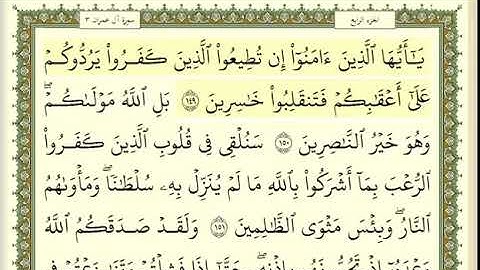 سورة آل عمران ٣ الجزء الرابع
يَٰٓأَيُّهَا ٱلَّذِينَ ءَامَنُوٓاْ إِن تُطِيعُواْ ٱلَّذِينَ كَفَرُواْ يَرُدُّوكُمْ
عَلَىٰٓ أَعْقَٰبِكُمْ فَتَنقَلِبُواْ خَٰسِرِينَ ١٤٩ بَلِ ٱللَّهُ مَوْلَىٰكُمْۖ
وَهُوَ خَيْرُ ٱلنَّٰصِرِينَ ١٥٠ سَنُلْقِى فِى قُلُوبِ ٱلَّذِينَ كَفَرُواْ
ٱلرُّعْبَ بِمَآ أَشْرَكُواْ بِٱللَّهِ مَا لَمْ يُنَزِّلْ بِهِۦ سُلْطَٰنًاۖ وَمَأْوَىٰهُمُ
ٱلنَّارُۖ وَبِئْسَ مَثْوَى ٱلظَّٰلِمِينَ ١٥١ وَلَقَدْ صَدَقَكُمُ ٱللَّهُ
وَعْدَهُۥٓ إِذْ تَحُسُّونَهُم بِإِذْنِهِۦۖ حَتَّىٰٓ إِذَا فَشِلْتُمْ وَتَنَٰزَعْتُمْ فِى